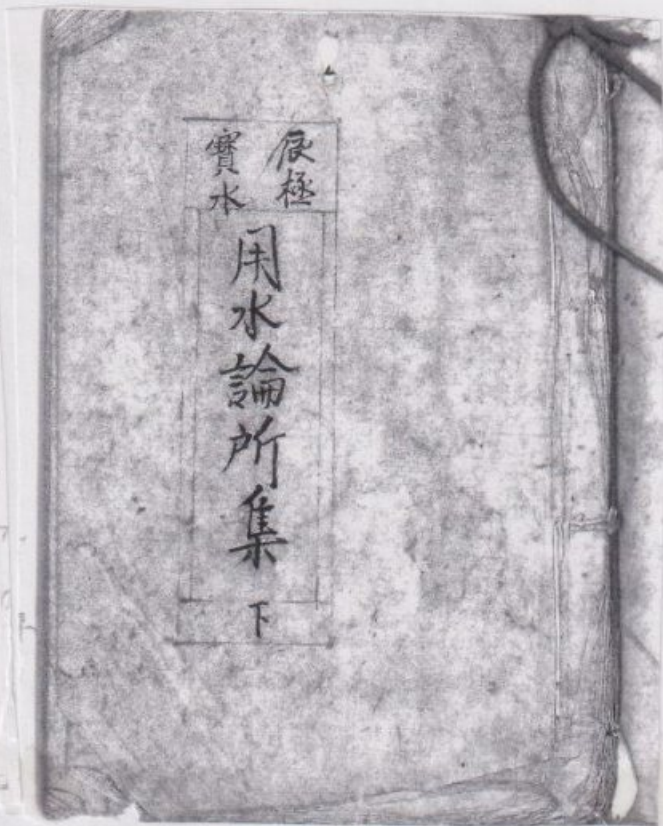 極
寶水
用水論所集
下